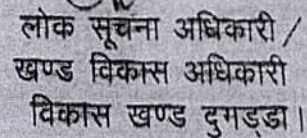 लोक सूचना अधिकारी /
खण्ड विकास अधिकारी
विकास खण्ड दुगड्डा।